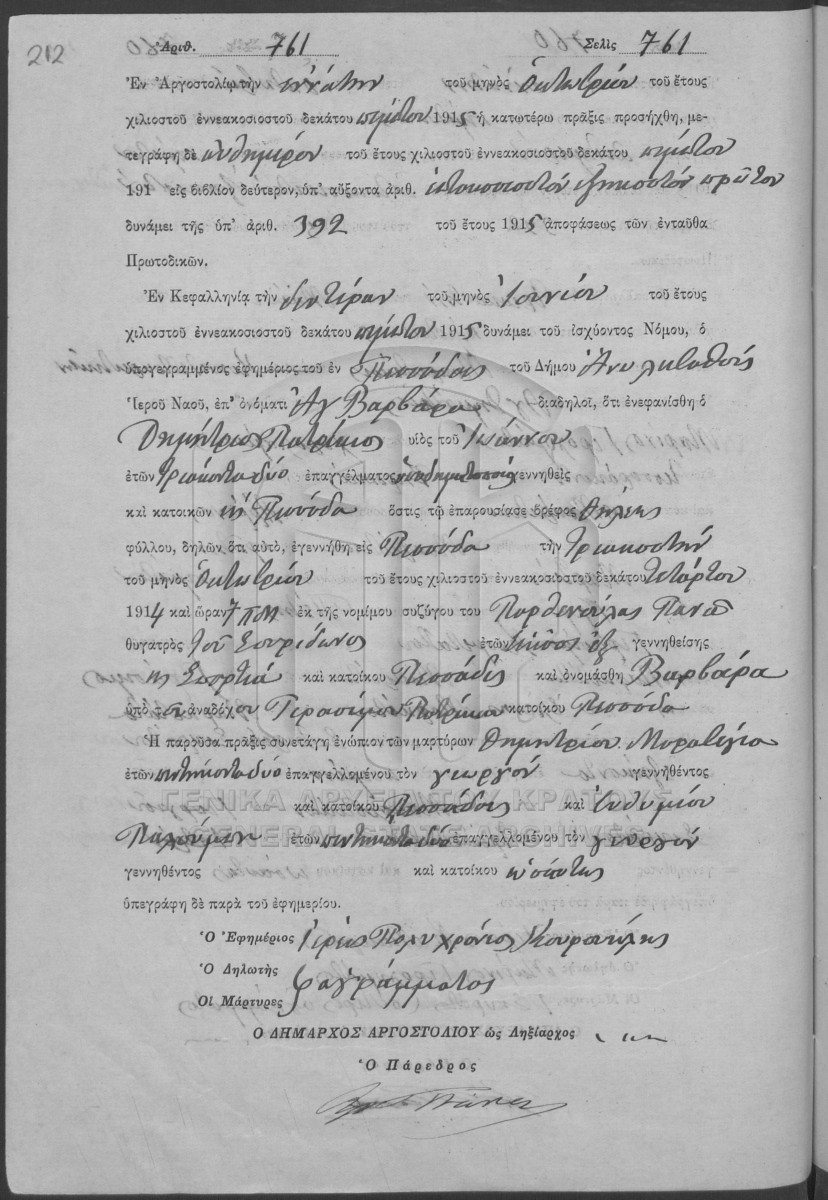 212
Ἀριθ. 761 Σελὶς 761
Ἐν Ἀργοστολίῳ τὴν ἐννάτην τοῦ μηνὸς Ὀκτωβρίου τοῦ ἔτους
χιλιοστοῦ ἐννεακοσιοστοῦ δεκάτου πέμπτου 1915 ἡ κατωτέρω πρᾶξις προσήχθη, με-
τεγράφη δὲ αὐθημερὸν τοῦ ἔτους χιλιοστοῦ ἐννεακοσιοστοῦ δεκάτου πέμπτου
191 εἰς βιβλίον δεύτερον, ὑπ' αὔξοντα ἀριθ. ἑπτακοσιοστὸν ἑξηκοστὸν πρῶτον
δυνάμει τῆς ὑπ' ἀριθ. 392 τοῦ ἔτους 1915 ἀποφάσεως τῶν ἐνταῦθα
Πρωτοδικῶν.
Ἐν Κεφαλληνίᾳ τὴν δευτέραν τοῦ μηνὸς Ἰουνίου τοῦ ἔτους
χιλιοστοῦ ἐννεακοσιοστοῦ δεκάτου πέμπτου 1915 δυνάμει τοῦ ἰσχύοντος Νόμου, ὁ
ὑπογεγραμμένος ἐφημέριος τοῦ ἐν Πεσσάδαις τοῦ Δήμου
Ἱεροῦ Ναοῦ, ἐπ' ὀνόματι Ἁγ Βαρβάρα διαδηλοῖ, ὅτι ἐνεφανίσθη ὁ
Δημήτριος Πατρίκιος υἱὸς τοῦ Ἰωάννου
ἐτῶν τριάκοντα δύο ἐπαγγέλματος ὑποδηματοποιὸς γεννηθεὶς
καὶ κατοικῶν ἐν Πεσσάδα ὅστις τῷ ἐπαρουσίασε βρέφος θήλεος
φύλλου, δηλῶν ὅτι αὐτὸ, ἐγεννήθη εἰς Πεσσάδα τὴν τριακοστὴν
τοῦ μηνὸς Ὀκτωβρίου τοῦ ἔτους χιλιοστοῦ ἐννεακοσιοστοῦ δεκάτου τετάρτου
1914 καὶ ὥραν 7 πμ ἐκ τῆς νομίμου συζύγου του Παρθενούλας
θυγατρὸς τοῦ Σπυρίδωνος ἐτῶν εἴκοσι ἓξ γεννηθείσης
εἰς Σπαρτιὰ καὶ κατοίκου Πεσσάδες καὶ ὀνομάσθη Βαρβάρα
ὑπὸ τοῦ ἀναδόχου Γερασίμου Πατρίκιου κατοίκου Πεσσάδα
Ἡ παροῦσα πρᾶξις συνετάγη ἐνώπιον τῶν μαρτύρων Δημητρίου
ἐτῶν πεντήκοντα δύο ἐπαγγελλομένου τὸν γεωργόν γεννηθέντος
καὶ κατοίκου Πεσσάδες καὶ Εὐθυμίου
ἐτῶν πεντήκοντα δύο ἐπαγγελλομένου τὸν γεωργόν
γεννηθέντος καὶ κατοίκου ὡσαύτως
ὑπεγράφη δὲ παρὰ τοῦ ἐφημερίου.
Ὁ Ἐφημέριος Ἱερεὺς Πολυχρόνιος
Ὁ Δηλωτής
Οἱ Μάρτυρες ἀγράμματος
Ο ΔΗΜΑΡΧΟΣ ΑΡΓΟΣΤΟΛΙΟΥ ὡς Ληξίαρχος
Ὁ Πάρεδρος
ΓΕΝΙΚΑ ΑΡΧΕΙΑ ΤΟΥ ΚΡΑΤΟΥΣ
GENERAL STATE ARCHIVES